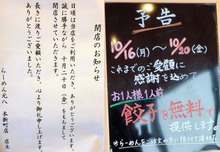 閉店のお知らせ
日頃は当店をご利用いただき、
ありがとうございます。
誠に勝手ながら、十月二十日(金)をもちまして
閉店させていただきます。
長きに渡りご愛顧いただき、心より御礼申し上げます。
ありがとうございました。
らーめん八 本新町店 店主
予告
10/16(月)～10/20(金)
これまでのご愛顧に
感謝を込めて
お1人様1人前
餃子を無料で
提供します。